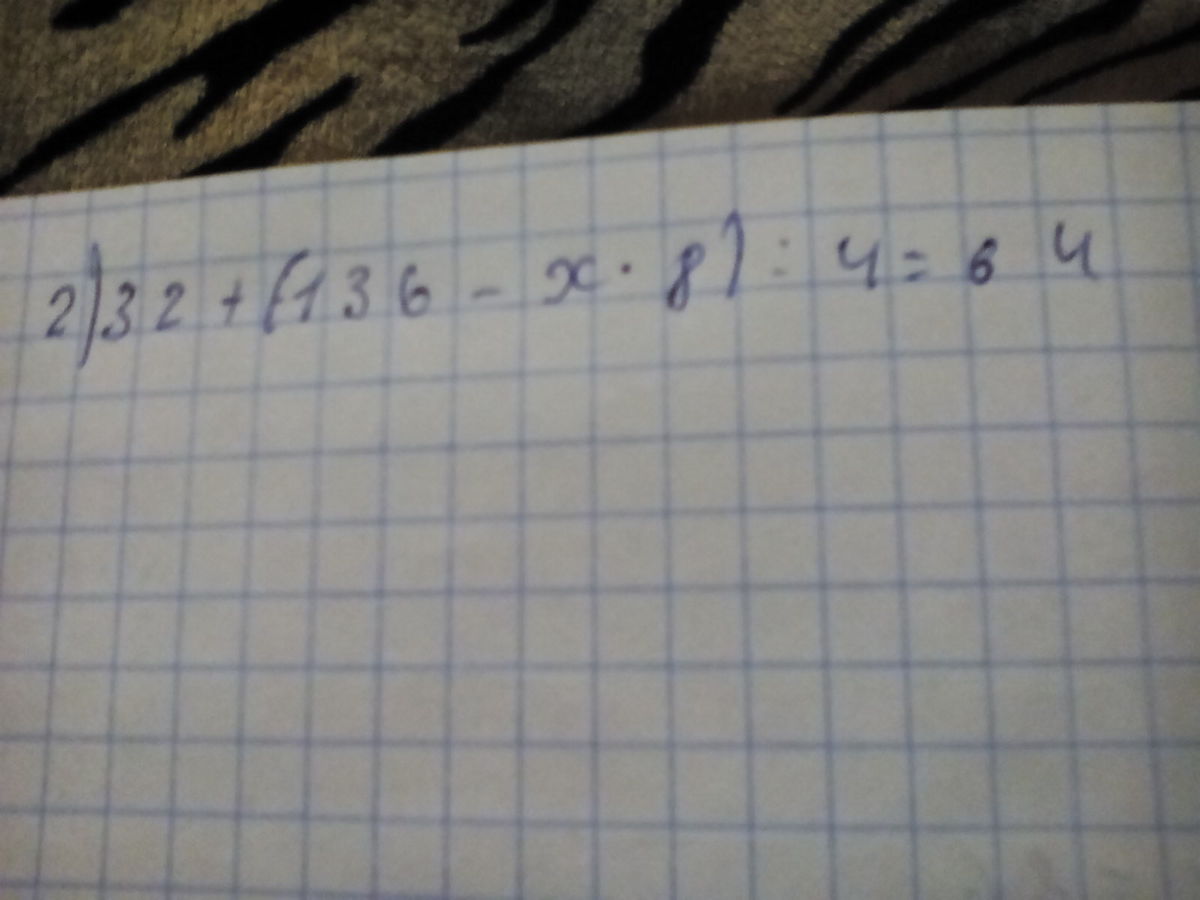 2) 32 + (136 - x · 8) : 4 = 64